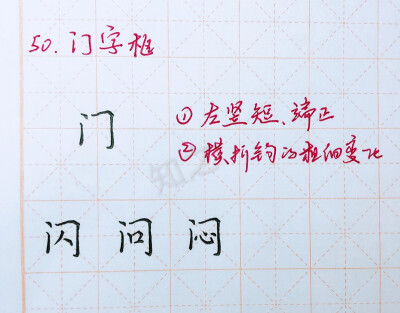 50. 门字框
门
① 左竖短、端正
② 横折钩的粗细变化
闪 问 闷